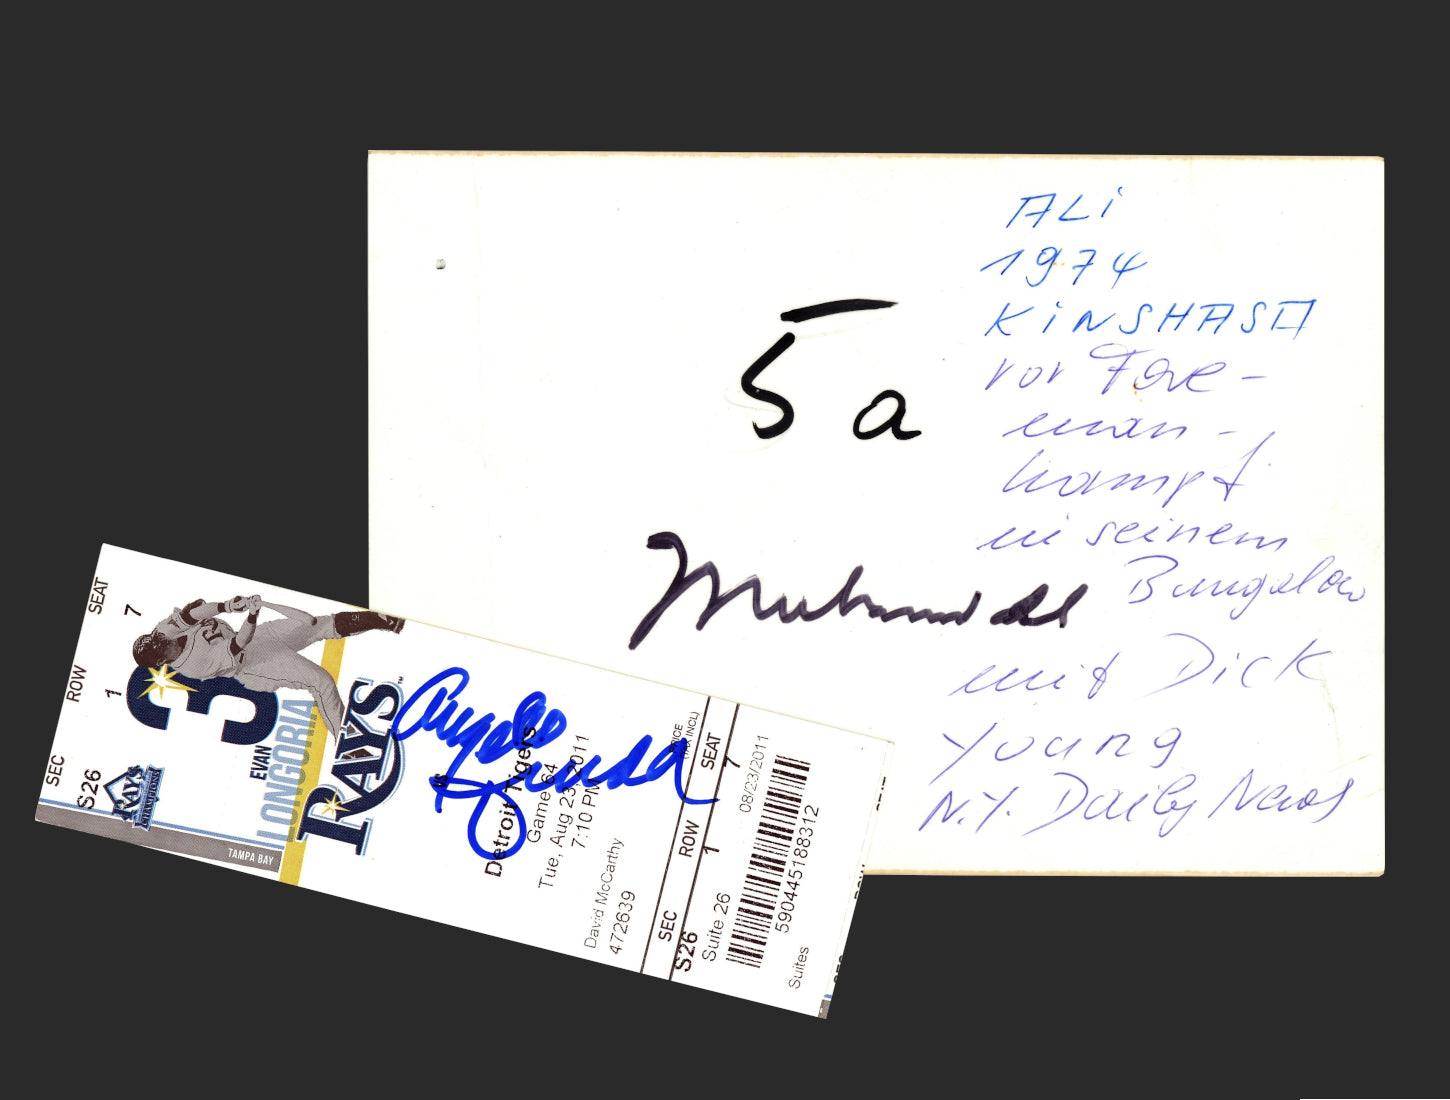 ALi
1974
KiNSHASA
vor Fore-
man-
kampf
in seinem
Bungalow
mit Dick
Young
N.Y. Daily News
5 a
Muhammad Ali
SEC S26 ROW 1 SEAT 7
RAYS
TAMPA BAY
3
EVAN
LONGORIA
RAYS
Angelo Dundee
vs
Detroit Tigers
Game 64
Tue, Aug 23, 2011
7:10 PM
David McCarthy
472639
SEC S26 ROW 1 SEAT 7
Suite 26
08/23/2011
590445188312
Suites